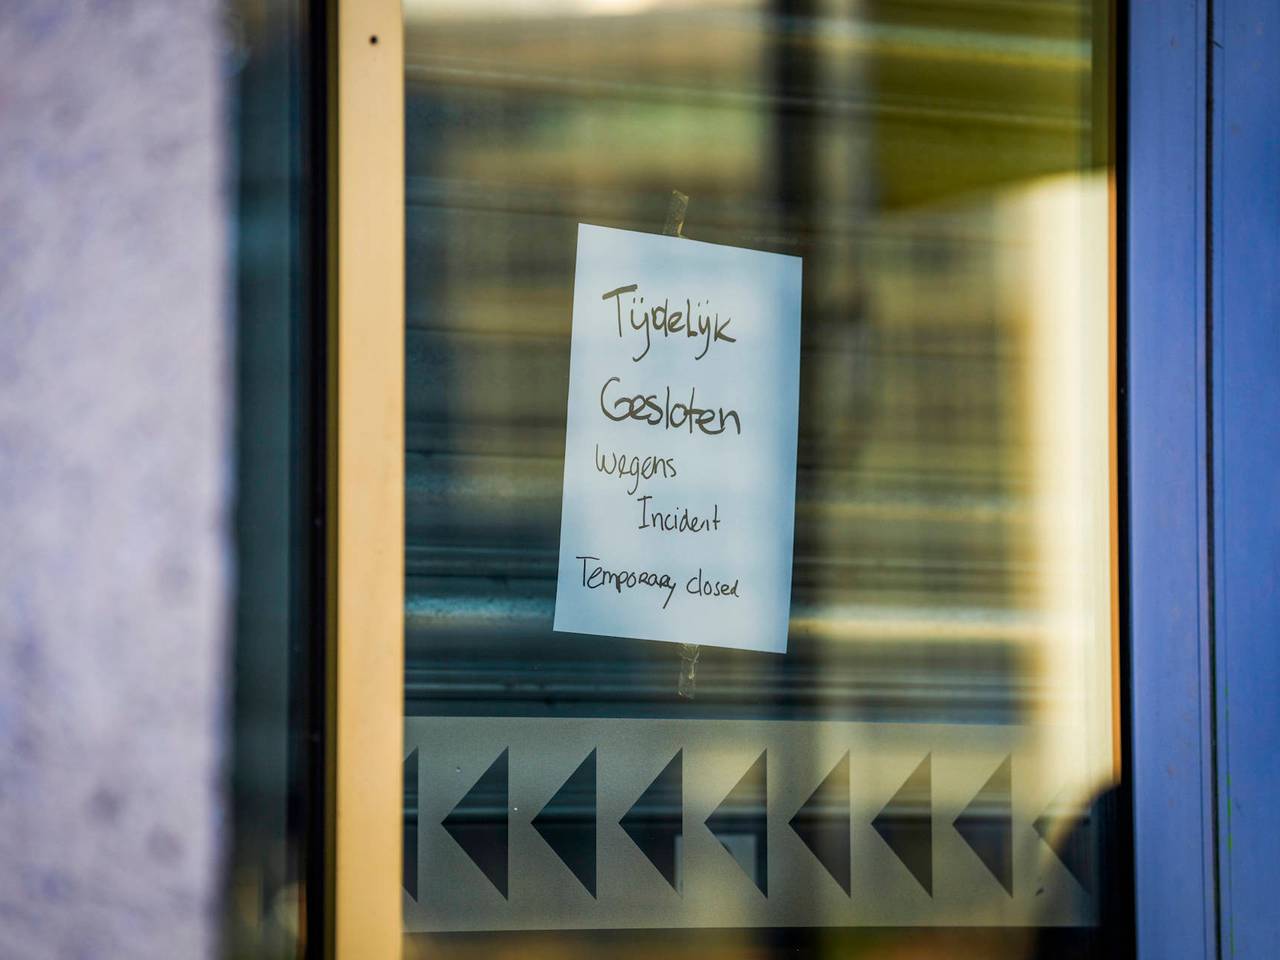 Tijdelijk
Gesloten
wegens
Incident
Temporary closed